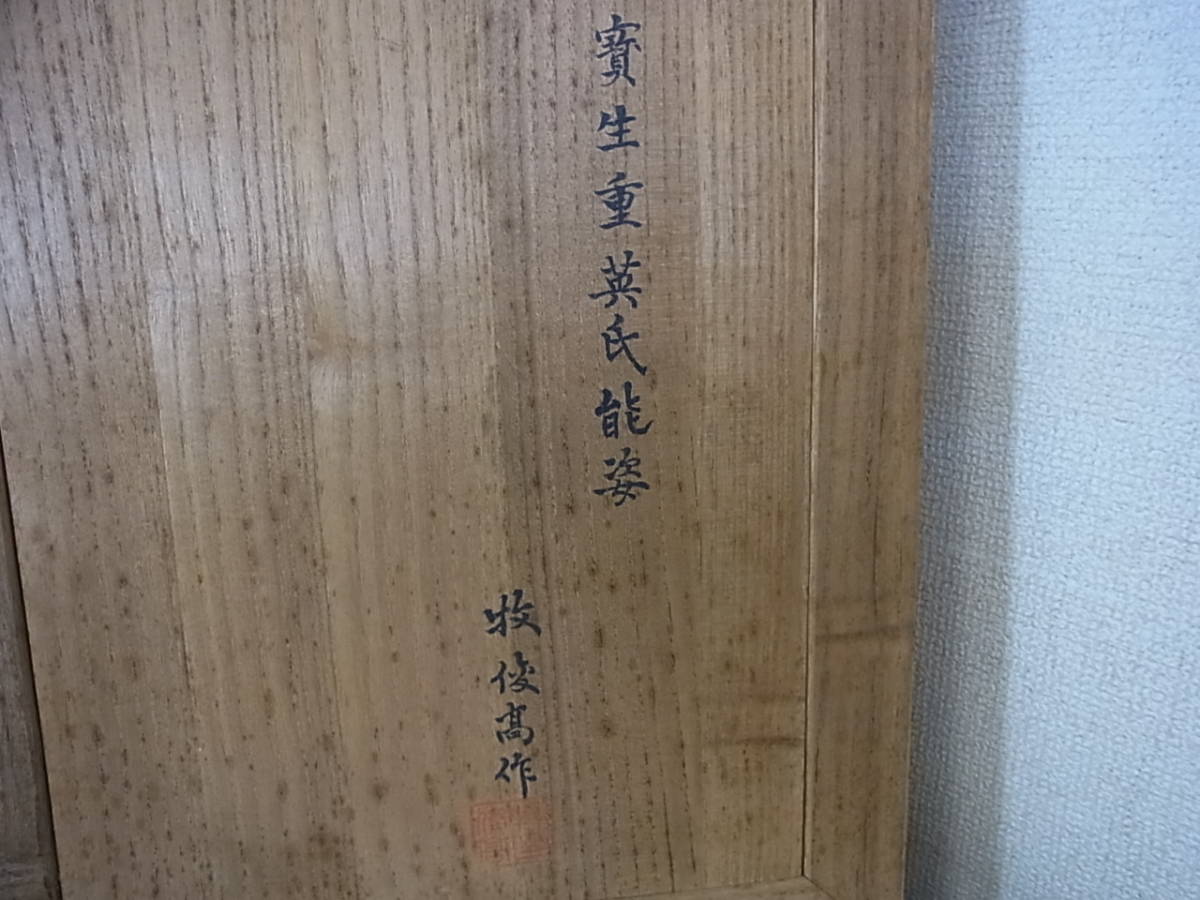 寳生重英氏能姿
牧俊髙作